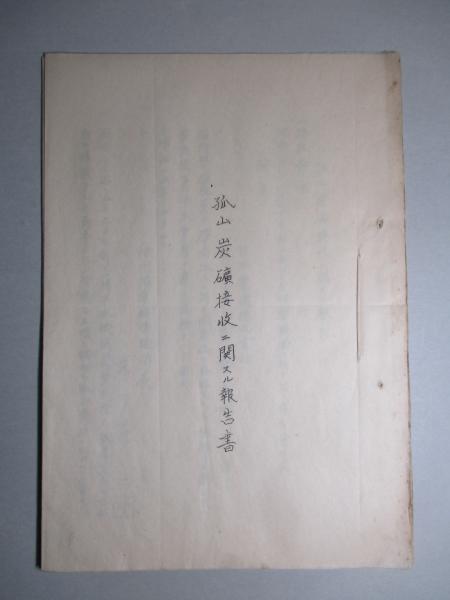 孤山炭礦接收ニ関スル報告書